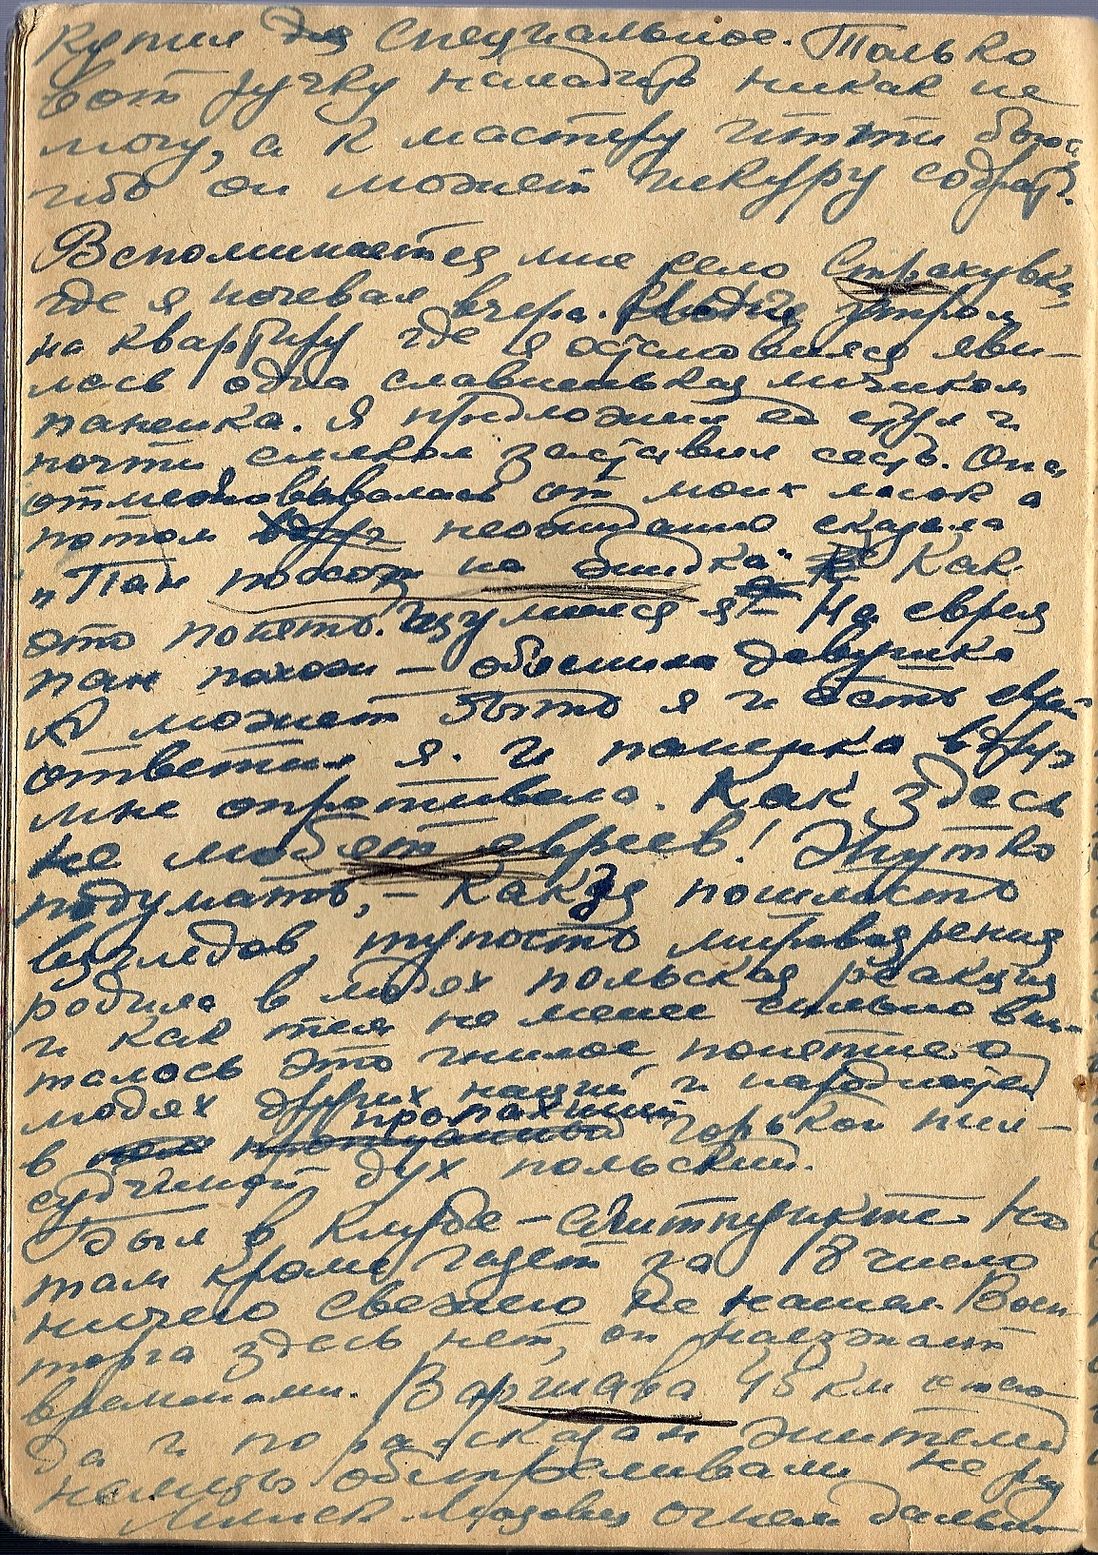 купил специальное. Только
вот ручку наладить никак не
могу, а к мастеру итти боюсь
ибо он может шкуру содрать.
Вспоминается мне село Страхувка,
где я ночевал вчера. утром
на квартиру где я остановился яви-
лась одна славненькая личиком
паненка. Я предложил ей стул и
почти силком заставил сесть. Она
отмалчивалась от моих ласок а
потом неожиданно сказала
„Пан похож на жидка". Как
это понять. Изумился я. – На еврея
пан похож – объяснила девушка
А может быть я и есть еврей
ответил я. И паненка вдруг
мне опротивела. Как здесь
не любят евреев! Жутко
подумать, – Какую пошлость
взглядов, тупость мировоззрения
родила в людях польская реакция
и как тем не менее сильно впи-
талось это гнилое понятие о
людях других наций и народностей
в пропахший горькой пил-
судчиной дух польский.
Был в клубе – агитпункте. Но
там кроме газет за 18 число
ничего свежего не нашел. Воен
торга здесь нет, он наезжает
временами. Варшава 45 км отсю
да и по рассказам жителей
немцы обстреливали не раз
Минск-Мазовец огнем дальн